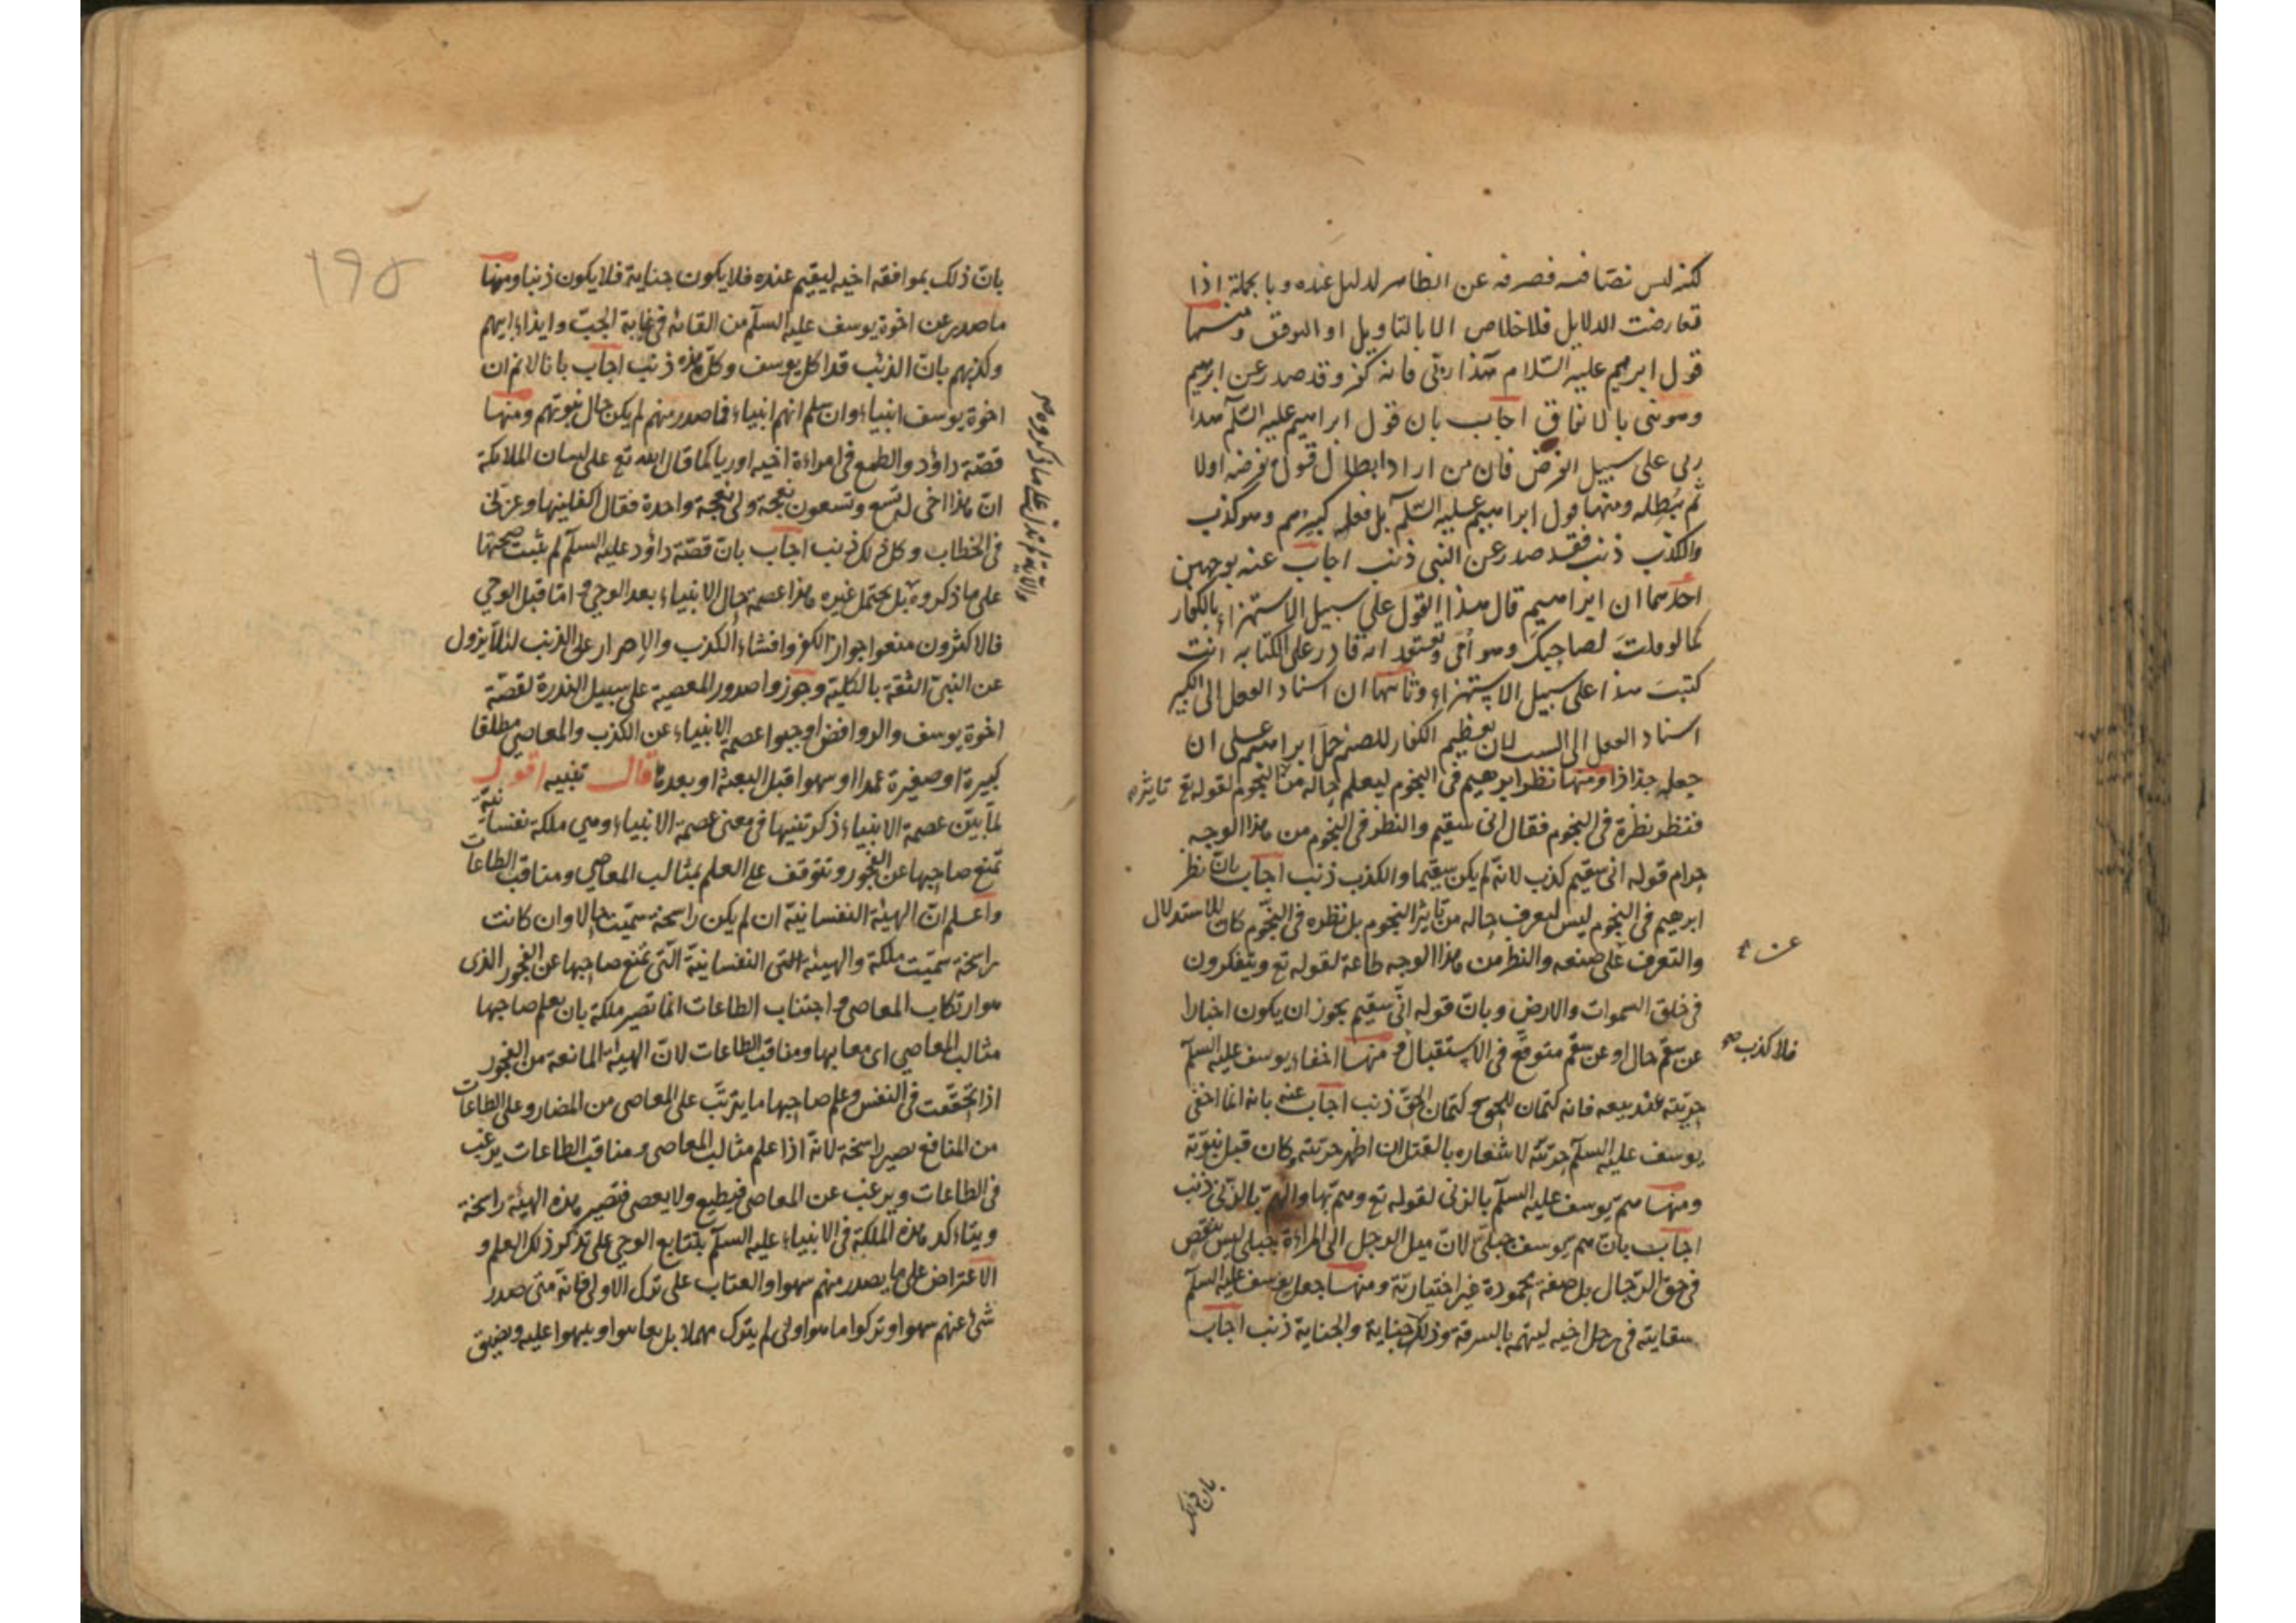 لكنه ليس نصا فيه فصرفه عن الظاهر لدليل عنده وبالجملة اذا
تعارضت الدلايل فلا خلاص الا بالتاويل او التوقف ومنها
قول ابرهيم عليه السلام هذا ربى فانه كفر وقد صدر عن ابرهيم
وهو نبى بالاتفاق اجاب بان قول ابراهيم عليه السلم هذا
ربى على سبيل الفرض فان من اراد ابطال قول يفرضه اولا
ثم يبطله ومنها قول ابراهيم عليه السلم بل فعله كبيرهم وهو كذب
والكذب ذنب فقد صدر عن النبى ذنب اجاب عنه بوجهين
احدهما ان ابراهيم قال هذا القول على سبيل الاستهزاء بالكفار
كما لو قلت لصاحبك وهو امى وتعتقد انه قادر على الكتابه انت
كتبت هذا على سبيل الاستهزاء وثانيها ان اسناد الفعل الى الكبير
اسناد الفعل الى السبب لان تعظيم الكفار للصنم حمل ابراهيم على ان
جعله جذاذا ومنها نظر ابرهيم فى النجوم ليعلم حاله من النجوم لقوله تع تايثره
فنظر نظرة فى النجوم فقال انى سقيم والنظر فى النجوم من هذا الوجه
حرام قوله انى سقيم كذب لانه لم يكن سقيما والكذب ذنب اجاب بان نظر
ابرهيم فى النجوم ليس ليعرف حاله من تايثر النجوم بل نظره فى النجوم كان للاستدلال
والتعرف على صنعه والنظر من هذا الوجه طاعة لقوله تع ويتفكرون
فى خلق السموات والارض وبان قوله انى سقيم يجوز ان يكون اخبارا
عن سقم حال او عن سقم متوقع فى الاستقبال و منها اخفاء يوسف عليه السلم
فلا كذب صح
حريته عند بيعه فانه كتمان للحق و كتمان الحق ذنب اجاب عنه بانه انما اخفى
يوسف عليه السلم حريته لاشعاره بالقتل ان اظهر حريته وكان قبل نبوته
ومنها هم يوسف عليه السلم بالزنى لقوله تع وهم بها والهم بالزنى ذنب
اجاب بان هم يوسف جبلى لان ميل الرجل الى المراءة جبلى ليس بنقص
فى حق الرجال بل صفة محمودة غير اختيارية ومنها جعل يوسف عليه السلم
سقايته فى رحل اخيه ليتهمه بالسرقة وذلك جناية والجناية ذنب اجاب
بان ذلك
١٩٥
بان ذلك بموافقه اخيه ليقيم عنده فلا يكون جناية فلا يكون ذنبا ومنها
ما صدر عن اخوة يوسف عليه السلم من القائه فى غيابة الجب وايذاء ابيهم
وكذبهم بان الذئب قد اكل يوسف وكل هذه ذنب اجاب بانا لا نم ان
اخوة يوسف انبياء وان سلم انهم انبياء فما صدر منهم لم يكن حال نبوتهم ومنها
قصة داؤد والطمع فى امراءة اخيه اوريا كما قال الله تع على لسان الملائكة
ان هذا اخى له تسع وتسعون نعجة ولى نعجة واحدة فقال اكفلنيها وعزنى
فى الخطاب وكل ذلك ذنب اجاب بان قصة داؤد عليه السلم لم يثبت صحتها
على ما ذكروه بل يحتمل غيره هذا عصمة حال الانبياء بعد الوحى و اما قبل الوحى
والآية لم تدل على ما ذكروه صح
فالاكثرون منعوا جواز الكفر وافشاء الكذب والاصرار على الذنب لئلا يزول
عن النبى الثقة بالكلية وجوزوا صدور المعصية على سبيل الندرة لقصة
اخوة يوسف والروافض اوجبوا عصمة الانبياء عن الكذب والمعاصى مطلقا
كبيرة او صغيرة عمدا او سهوا قبل البعثة او بعدها قال تنبيه اقول
لما بين عصمة الانبياء ذكر تنبيها فى معنى عصمة الانبياء وهى ملكة نفسانية
تمنع صاحبها عن الفجور وتتوقف على العلم بمثالب المعاصى ومناقب الطاعات
واعلم ان الهيئة النفسانية ان لم يكن راسخة سميت حالا وان كانت
راسخة سميت ملكة والهيئة التى النفسانية التى تمنع صاحبها عن الفجور الذى
هو ارتكاب المعاصى و اجتناب الطاعات انما تصير ملكة بان يعلم صاحبها
مثالب المعاصى اى معايبها ومناقب الطاعات لان الهيئة المانعة من الفجور
اذا تحققت فى النفس وعلم صاحبها ما يترتب على المعاصى من المضار وعلى الطاعات
من المنافع تصير راسخة لانه اذا علم مثالب المعاصى ومناقب الطاعات يرغب
فى الطاعات ويرغب عن المعاصى فيطيع ولا يعصى فتصير هذه الهيئة راسخة
ويتاءكد هذه الملكة فى الانبياء عليه السلم بتتابع الوحى على تذكر ذلك العلم و
الاعتراض على ما يصدر منهم سهوا والعتاب على ترك الاولى فانه متى صدر
شئ عنهم سهوا و تركوا ما هو اولى لم يترك مهملا بل يعاتبوا و ينبهوا عليه ويضيق